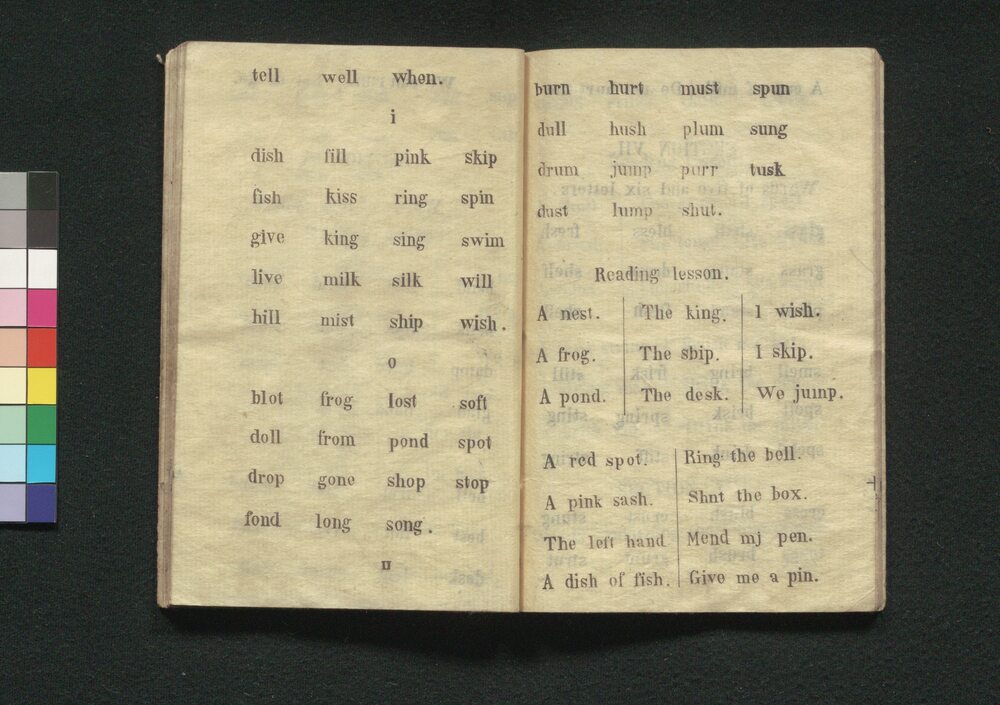 tell well when.
i
dish fill pink skip
fish kiss ring spin
give king sing swim
live milk silk will
hill mist ship wish.
o
blot frog lost soft
doll from pond spot
drop gone shop stop
fond long song.
u
burn hurt must spun
dull hush plum sung
drum jump purr tusk
dust lump shut.
Reading lesson.
A nest. The king. I wish.
A frog. The sbip. I skip.
A pond. The desk. We jump.
A red spot. Ring the bell.
A pink sash. Shnt the box.
The left hand Mend mj pen.
A dish of fish. Give me a pin.